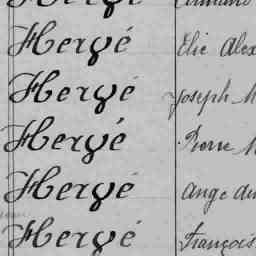 Hervé Elie Alex
Hervé Joseph M
Hervé Pierre M
Hervé Ange
Hervé François